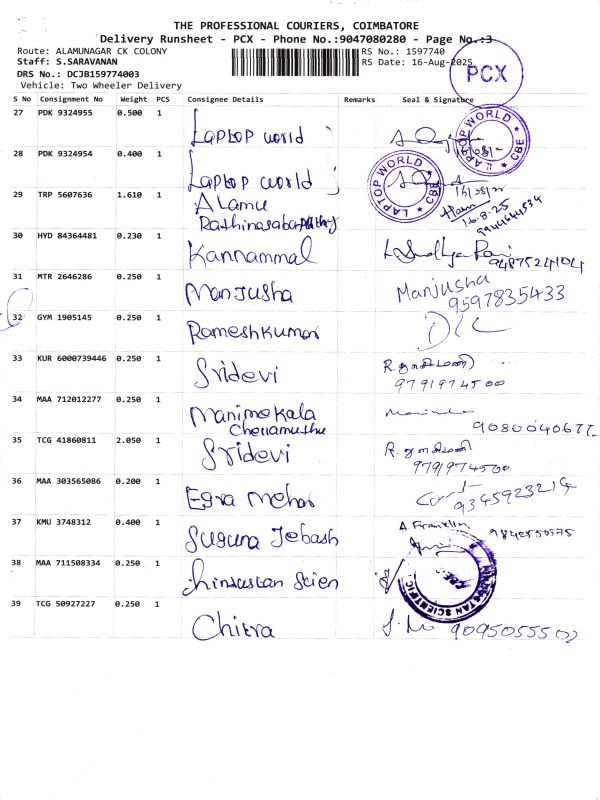 THE PROFESSIONAL COURIERS, COIMBATORE
Delivery Runsheet - PCX - Phone No.:9047080280 - Page No.:3
Route: ALAMUNAGAR CK COLONY RS No.: 1597740
Staff: S.SARAVANAN RS Date: 16-Aug-2025
DRS No.: DCJB159774003
Vehicle: Two Wheeler Delivery
PCX
S No Consignment No Weight PCS Consignee Details Remarks Seal & Signature
27 PDK 9324955 0.500 1 Laptop world
LAPTOP WORLD CBE
28 PDK 9324954 0.400 1 Laptop world
LAPTOP WORLD CBE
29 TRP 5607636 1.610 1 Alamu
Rathinasabapathy 16-8-25
9944644534
30 HYD 84364481 0.230 1 Kannammal
31 MTR 2646286 0.250 1 Manjusha Manjusha
9597835433
32 GYM 1905145 0.250 1 Rameshkumar
33 KUR 6000739446 0.250 1 Sridevi
9791974500
34 MAA 712012277 0.250 1 Manimekala
35 TCG 41860811 2.050 1 Sridevi
9791974500
36 MAA 303565086 0.200 1
9345923214
37 KMU 3748312 0.400 1 Suguna Jebash A. Franklin
9842550575
38 MAA 711508334 0.250 1 hindustan Scien
HINDUSTAN SCIENTIFIC CBE
39 TCG 50927227 0.250 1 Chitra 9095055502